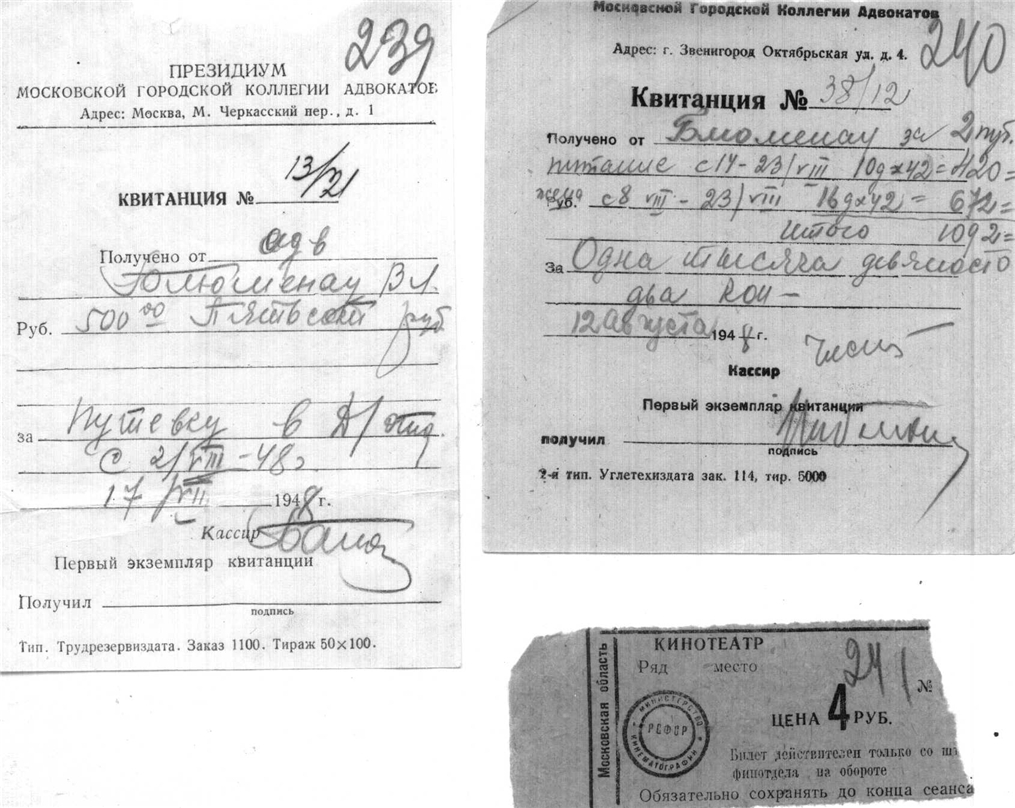 239
ПРЕЗИДИУМ
МОСКОВСКОЙ ГОРОДСКОЙ КОЛЛЕГИИ АДВОКАТОВ
Адрес: Москва, М. Черкасский пер., д. 1
КВИТАНЦИЯ № 13/21
Получено от адв
Блюменау В.Л.
Руб. 500 00 Пятьсот руб
за Путевку в Д/отд.
с 2/VIII-48г
17/VII 1948 г.
Кассир
Первый экземпляр квитанции
Получил
подпись
Тип. Трудрезервиздата. Заказ 1100. Тираж 50×100.
Московской Городской Коллегии Адвокатов
240
Адрес: г. Звенигород Октябрьская ул. д. 4.
Квитанция № 38/12
Получено от Блюменау за 2 пут.
питание с 14-23/VIII 10д×42=420=
Руб. с 8 VIII - 23/VIII 16д×42= 672=
Итого 1092=
За Одна тысяча девяносто
два коп —
12 августа 1948 г.
Кассир
Первый экземпляр квитанции
получил
подпись
2-я тип. Углетехиздата зак. 114, тир. 5000
Московская область
КИНОТЕАТР
Ряд место
241
№
ЦЕНА 4 РУБ.
МИНИСТЕРСТВО КИНЕМАТОГРАФИИ
РСФСР
Билет действителен только со ш
финотдела на обороте
Обязательно сохранять до конца сеанса